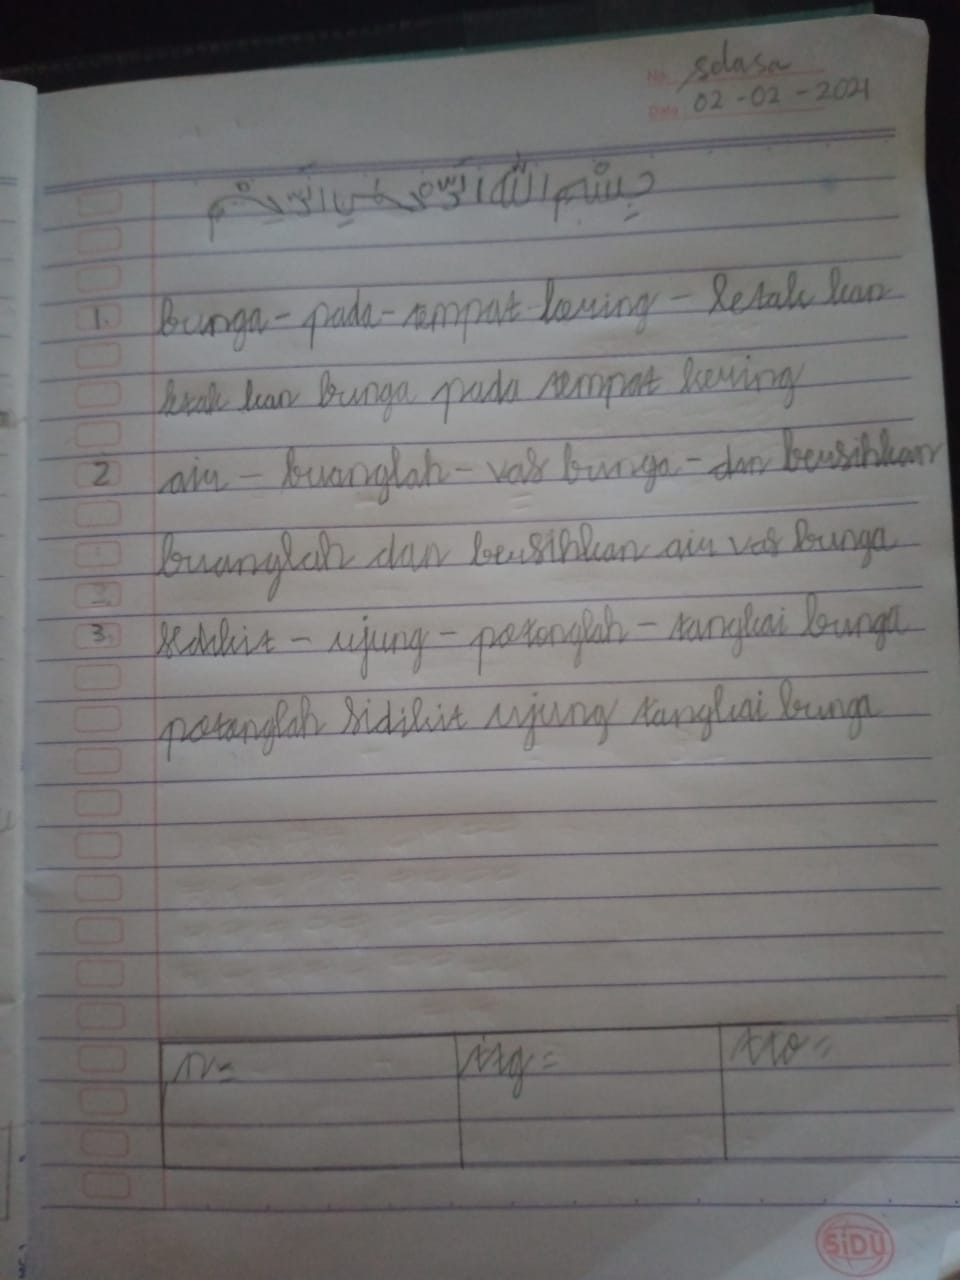 No. selasa
Date 02-02-2021
بسم الله الرحمن الرحيم
1. bunga - pada - tempat kering - letak kan
letak kan bunga pada tempat kering
2 air - buanglah - vas bunga - dan bersihkan
buanglah dan bersihkan air vas bunga
3. sedikit - ujung - potonglah - tangkai bunga
potonglah sidikit ujung tangkai bunga
N= ttg = tto =
SiDU